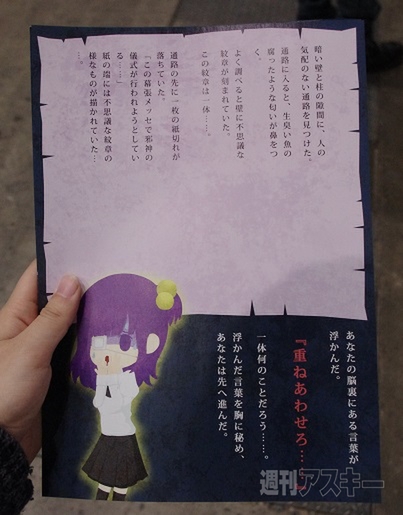 暗い壁と柱の隙間に、人の
気配のない通路を見つけた。
通路に入ると、生臭い魚の
腐ったような匂いが鼻をつ
く。
よく調べると壁に不思議な
紋章が刻まれていた。
この紋章は一体……。
通路の先に一枚の紙切れが
落ちていた。
『この幕張メッセで邪神の
儀式が行われようとしてい
る……』
紙の端には不思議な紋章の
様なものが描かれていた…。
あなたの脳裏にある言葉が
浮かんだ。
『重ねあわせろ…
一体何のことだろう……。
浮かんだ言葉を胸に秘め、
あなたは先へ進んだ。
週刊アスキー